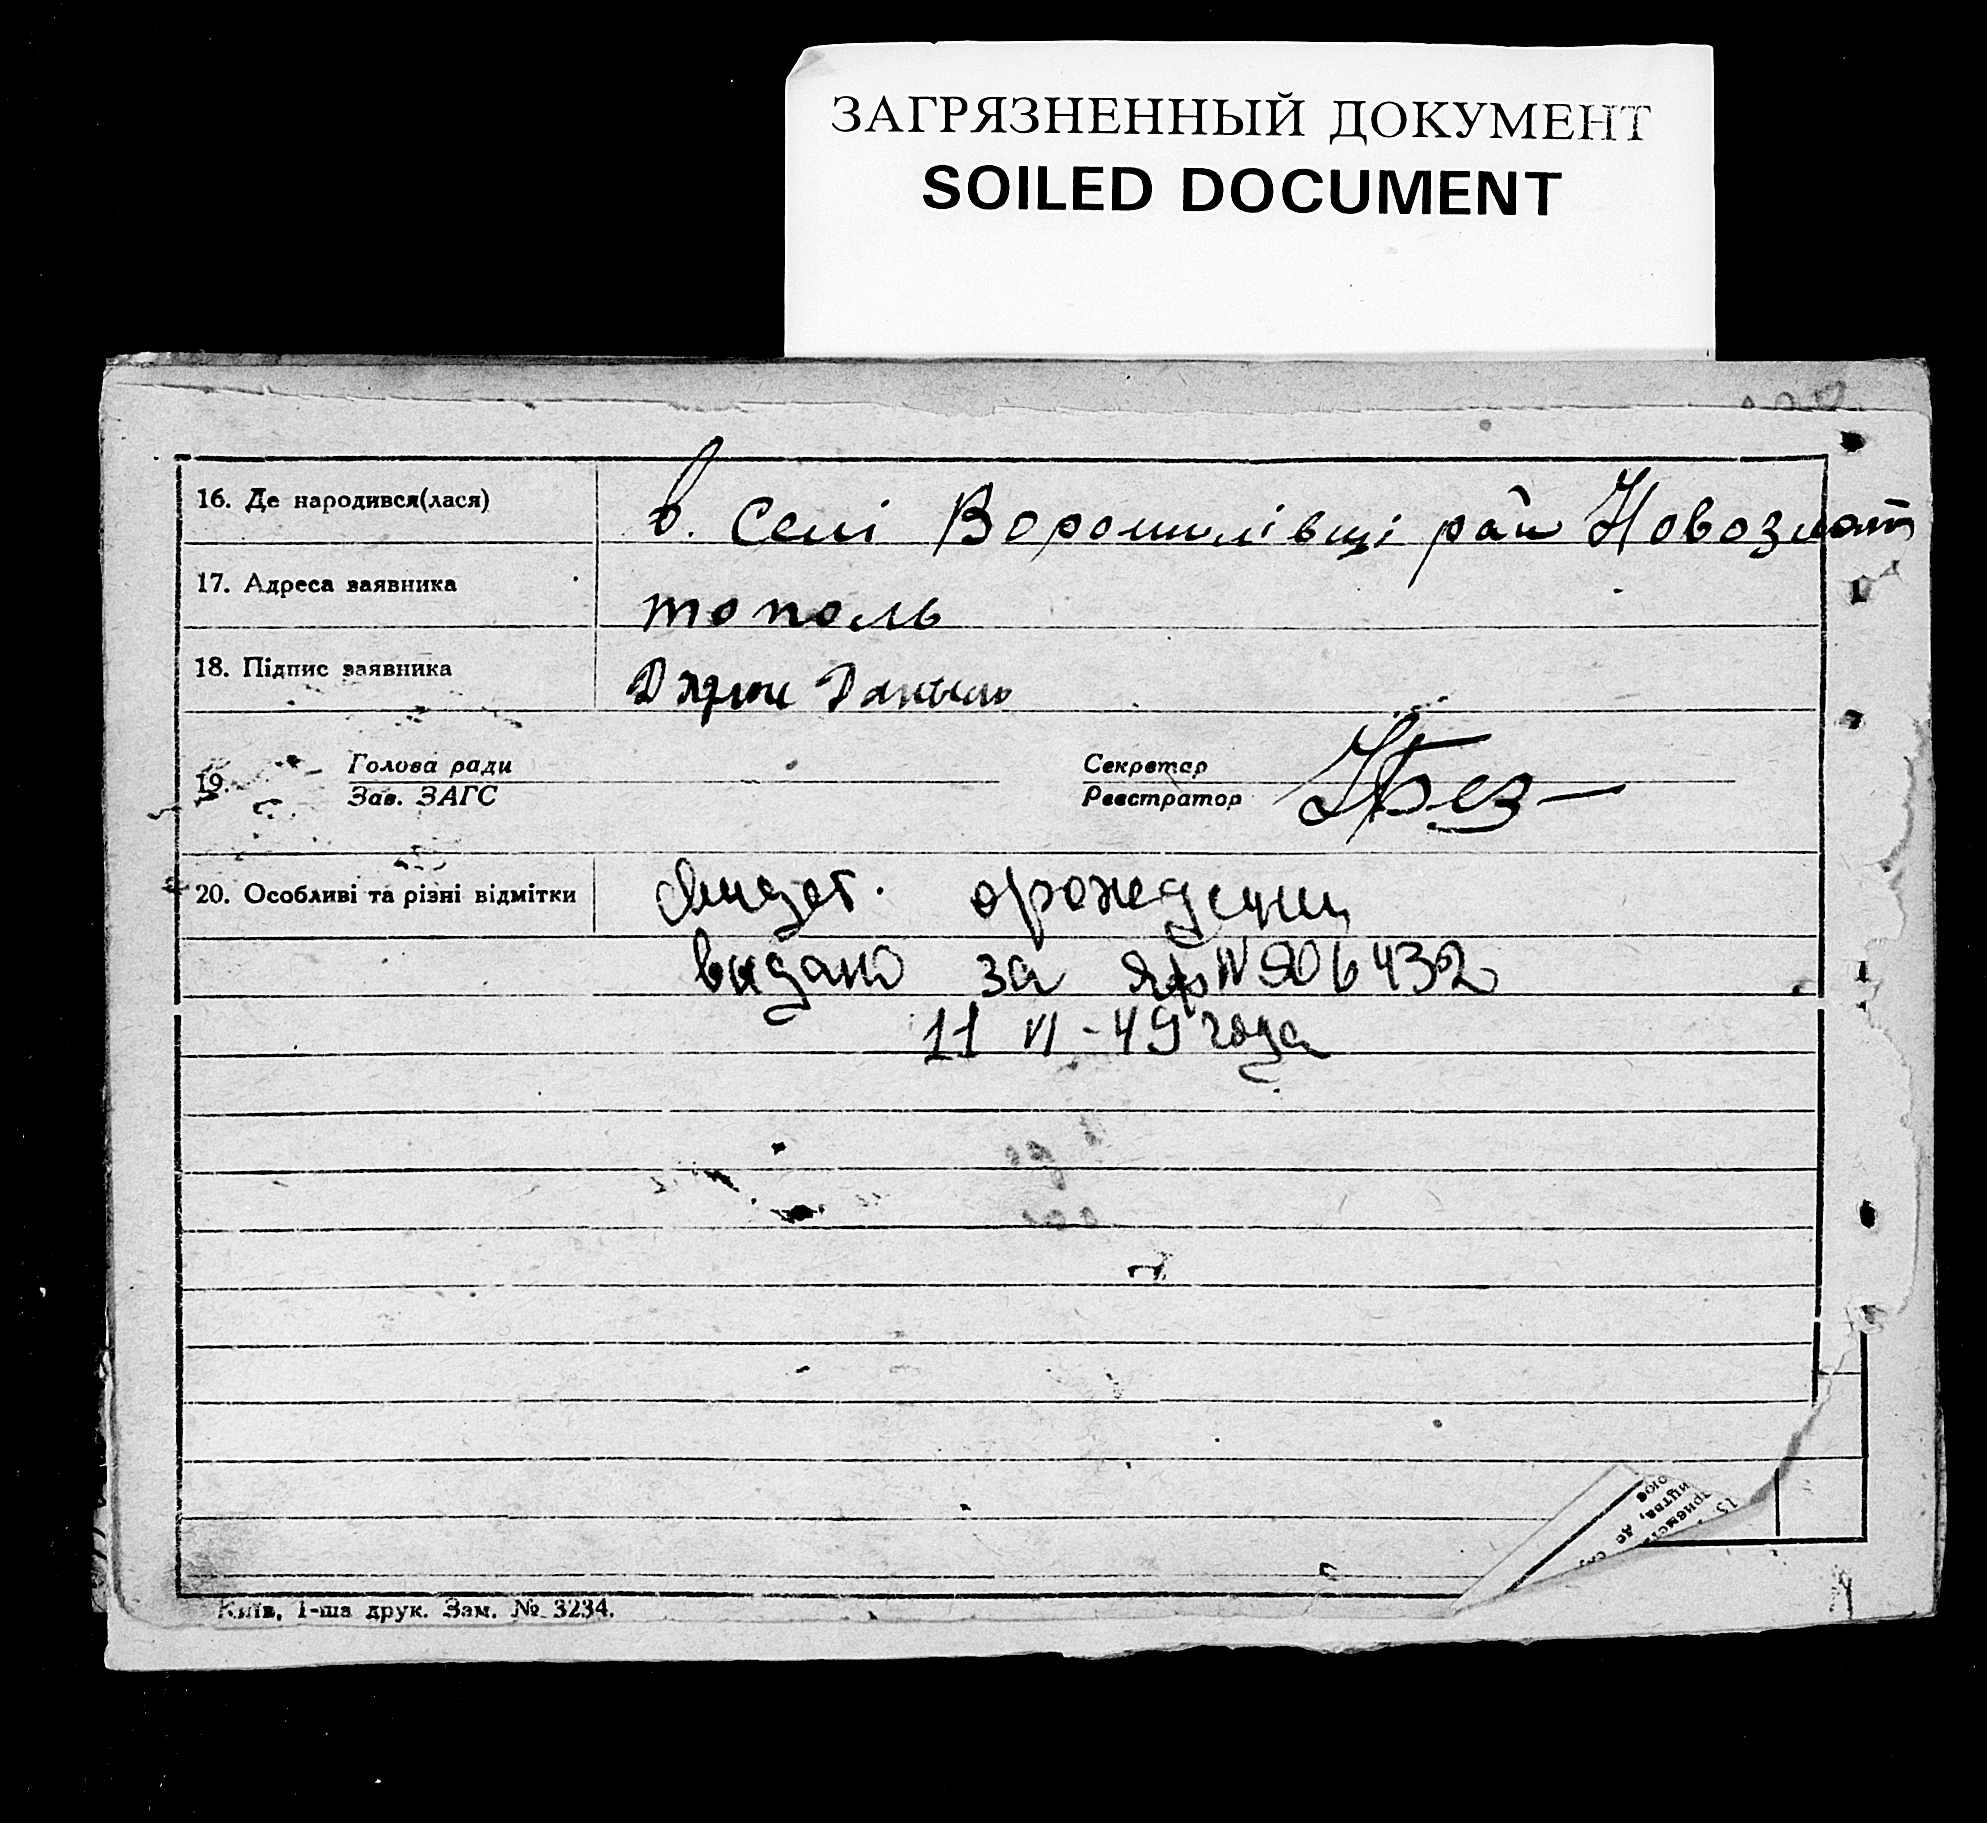 ЗАГРЯЗНЕННЫЙ ДОКУМЕНТ
SOILED DOCUMENT
16. Де народився(лася) в. Селі Ворошилівці рай Новозлат
17. Адреса заявника тополь
18. Підпис заявника
19. Голова ради
Зав. ЗАГС
Секретар
Реєстратор
20. Особливі та різні відмітки орождении
видано за Яр N 906432
11 VI - 49 года
Київ, 1-ша друк. Зам. № 3234.